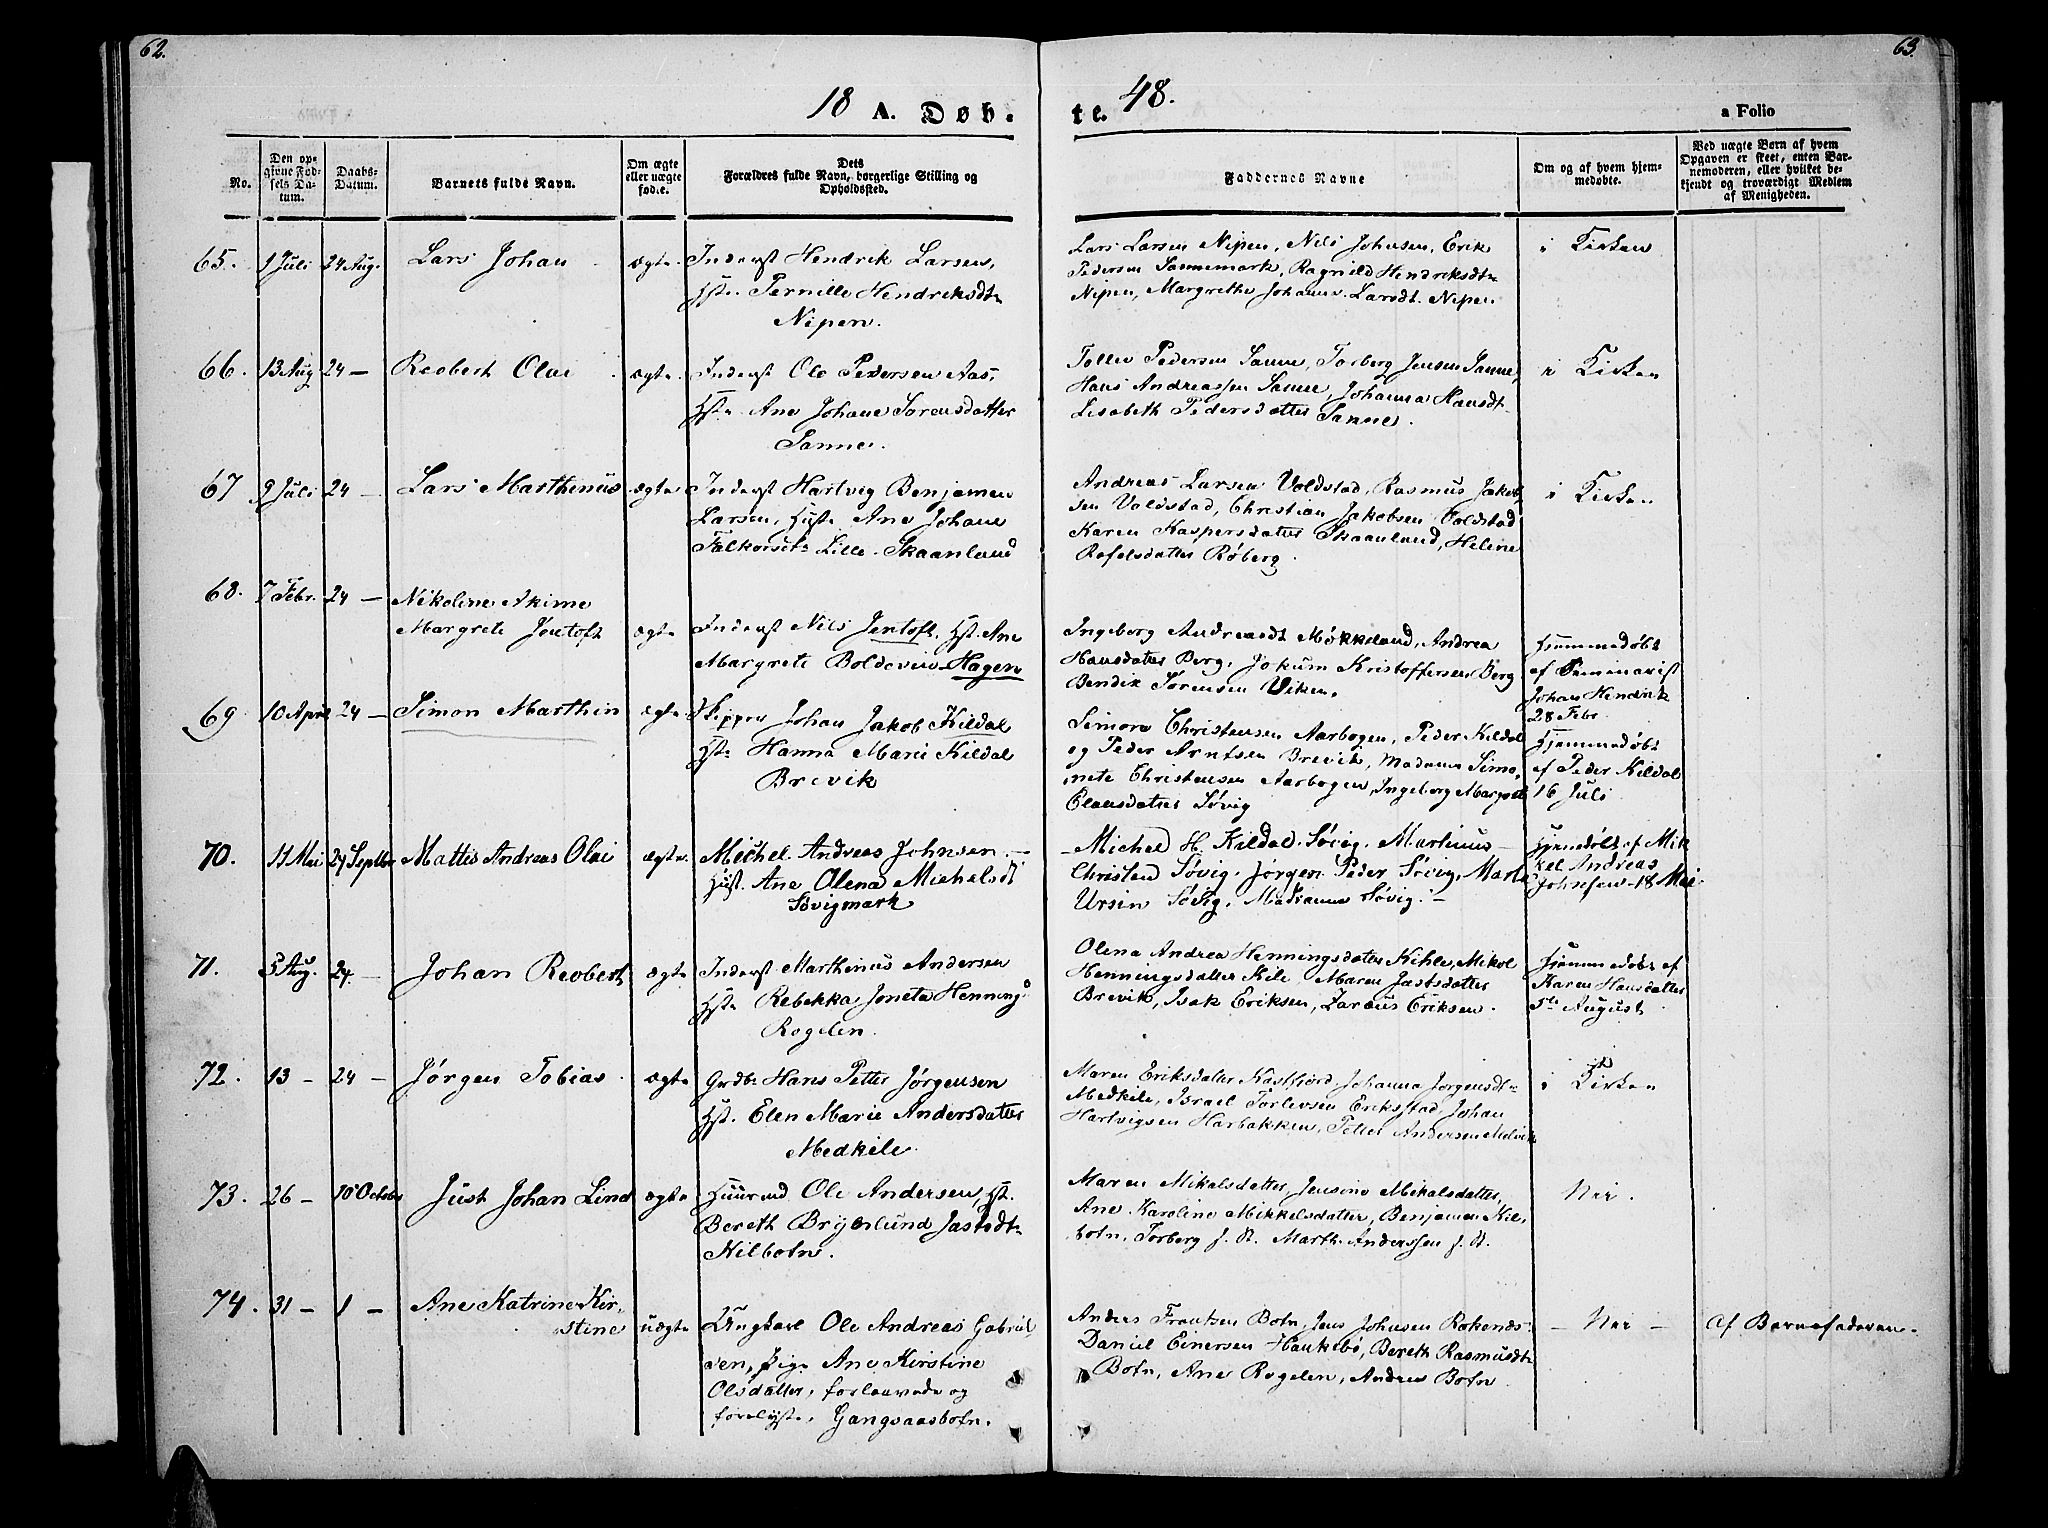 62.
63.
18 A. Døb-
te. 48.
a Folio
No.
Den op-
givne Fød-
sels Da-
tum.
Daabs-
Datum.
Barnets fulde Navn.
Om ægte
eller uægte
føde.
Dets
Forældres fulde Navn, borgerlige Stilling og
Opholdssted.
Faddernes Navne
Om og af hvem hjem-
medøbte.
Ved uægte Børn af hvem
Opgaven er skeet, enten Bar-
nemoderen, eller hvilket be-
kjendt og troværdigt Medlem
af Menigheden.
65. 9 Juli 24 Aug. Lars Johan ægte. Inderst Hendrik Larsen,
Hst. Pernille Hendriksdtr
Nipen.
Lars Larsen Nipen, Nils Johnsen, Erik
Pedersen Sannemark, Ragnild Hendriksdtr
Nipen, Margrethe Johanne Larsdt. Nipen
i Kirken
66. 13 Aug 24 — Reobert Olai ægte. Inderst Ole Pedersen Aas,
Hst. Ane Johane Sørensdatter
Sanne.
Tollev Pedersen Sanne, Torberg Jensen Sanne,
Hans Andreassen Sanne, Johanna Hansdt.
Lisabeth Pedersdatter Sanne.
i Kirken
67 9 Juli 24 — Lars Marthinus ægte Inderst Hartvig Benjamen
Larsen, Hust. Ane Johane
Lille-Skaanland
Andreas Larsen Voldstad, Rasmus Jakob
sen Voldstad, Christian Jakobsen Voldstad
Karen Kaspersdatter Skaanland, Heline
Rafelsdatter Røberg.
i Kirken
68. 7 Febr. 24 — Nikoline Akime
Margrete Jentoft ægte Inderst Nils Jentoft. Hst. Ane
Margrete Boldevin Hagen
Ingeborg Andreasdt Møkkeland, Andrea
Hansdatter Berg, Jokum Kristoffersen Berg
Bendix Sørensen Viken.
Hjemmedøbt
af Seminarist
Johan Hendrik
28 Febr.
69 10 April 24 — Simon Marthin ægte Skipper Johan Jakob Kildal
Hst. Hanna Marie Kildal
Brevik
Simon Christensen Aarbogen, Peder Kildal
og Peder Arntsen Brevik, Madame Simo-
nete Christensen Aarbogen, Ingeborg Margrete
Clausdatter Søvig
Hjemmedøbt
af Peder Kildal
16 Juli
70. 11 Mai 24 Septbr Mattis Andreas Olai ægte. Michel Andreas Johnsen —
Hust. Ane Olena Michelsdt
Søvigmark
Michel H. Kildal Søvig, Martinus
Christen Søvig, Jørgen Peder Søvig, Marta
Ursin Søvig, Madamme Søvig. —
Hjemdøbt af Mik
kel Andreas
Johnsen 18 Mai
71. 5 Aug. 24 — Johan Reobert ægte Inderst Marthinus Andersen
Hst. Rebekka Joneta Henning
Rogelen.
Olena Andrea Henningsdatter Kihle, Mikel
Henningsdatter Kile Maren Jastsdatter
Brevik, Isak Eriksen, Zaræus Eriksen.
Hjemmedøbt af
Karen Hansdatter
5te August
72. 13 — 24 — Jørgen Tobias ægte Grdbr Hans Petter Jørgensen
Hst. Elen Marie Andersdatter
Medkile.
Maren Eriksdatter Kastfjord, Johanna Jørgensdtr
Medkile, Israel Torlevsen Erikstad, Johan
Hartvigsen Harbakken, Petter Andersen Melvik
i Kirken
73. 26 — 10 October Just Johan Lind ægte Huusmd Ole Andersen, Hst.
Bereth Brynlund Jastsdtr
Kilbotn.
Maren Mikalsdatter, Jensine Mikalsdatter,
Ane Karoline Mikkelsdatter, Benjamen Kil-
botn, Torberg f. St. Marth. Anderssen f. St.
Nei.
74. 31 — 1 — Ane Katrine Kir-
stine uægte Ungkarl Ole Andreas Gabriel
sen, Pige Ane Kirstine
Olsdatter, forlovede og
forelyste, Gangsaasbotn.
Anders Frantzen Botn, Jens Johnsen Rokenæs
Daniel Einersen Haukebø, Bereth Rasmusdtr
Botn, Ane Rogelen, Andreas Botn
— Nei — Af Barnefaderen.